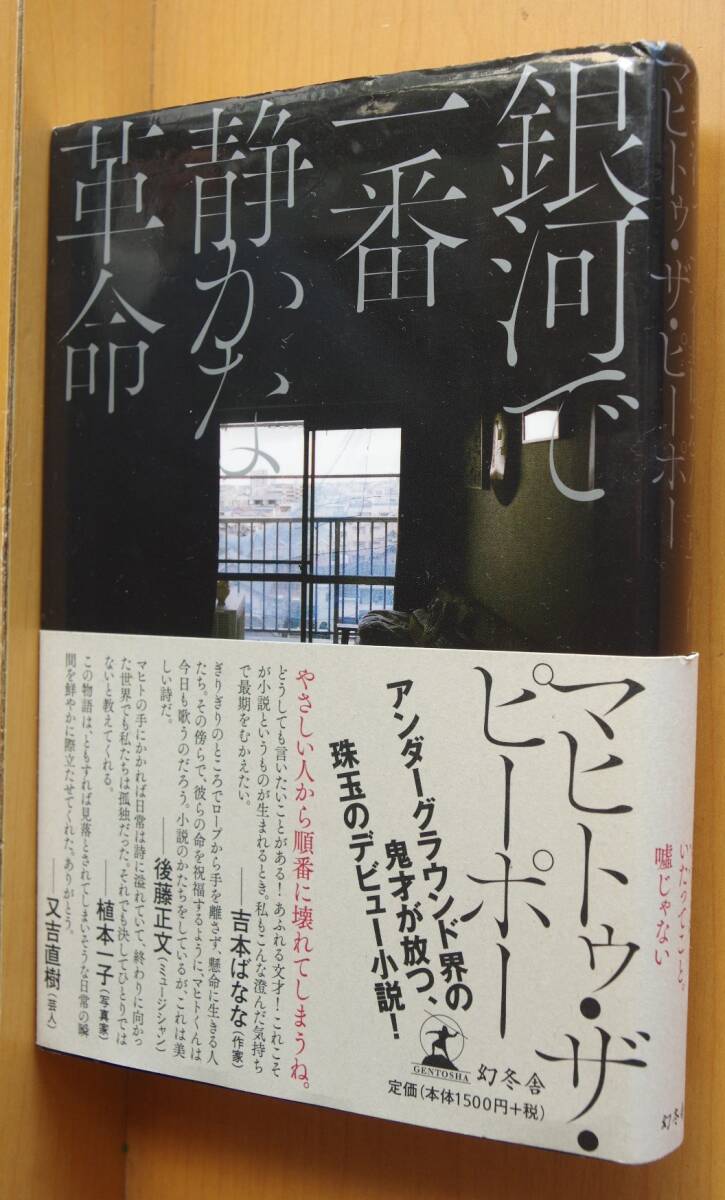 銀河で
一番
静かな
革命
マヒトゥ・ザ・ピーポー
マヒトゥ・ザ・
ピーポー
アンダーグラウンド界の
鬼才が放つ、
珠玉のデビュー小説!
やさしい人から順番に壊れてしまうね。
どうしても言いたいことがある!あふれる文才!これこそ
が小説というものが生まれるとき。私もこんな澄んだ気持ち
で最期をむかえたい。
——吉本ばなな(作家)
ぎりぎりのところでロープから手を離さず、懸命に生きる人
たち。その傍らで、彼らの命を祝福するように、マヒトくんは
今日も歌うのだろう。小説のかたちをしているが、これは美
しい詩だ。
——後藤正文(ミュージシャン)
マヒトの手にかかれば日常は詩に溢れていて、終わりに向かっ
た世界でも私たちは孤独だった。それでも決してひとりでは
ないと教えてくれる。
——植本一子(写真家)
この物語は、ともすれば見落とされてしまいそうな日常の瞬
間を鮮やかに際立たせてくれた。ありがとう。
——又吉直樹(芸人)
GENTOSHA
幻冬舎
定価(本体1500円+税)
いたってこと。
嘘じゃない
幻冬